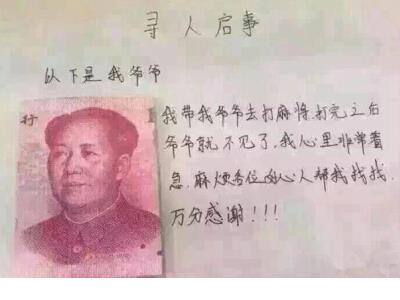 寻人启事
以下是我爷爷
我带我爷爷去打麻将,打完之后
爷爷就不见了,我心里非常着
急,麻烦各位好心人帮我找找,
万分感谢!!!
行